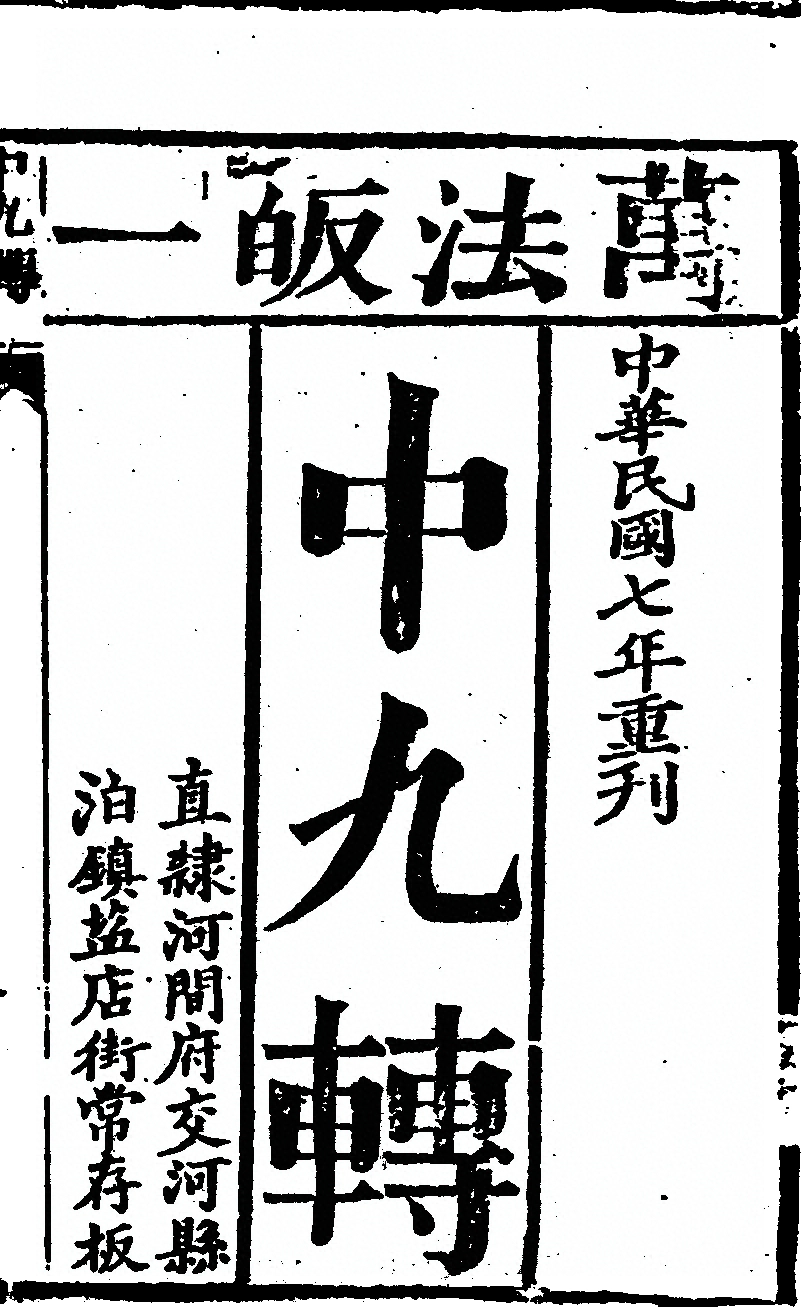 萬法皈一
中華民國七年重刊
中九轉
直隸河間府交河縣
泊鎮盐店街常存板
中九轉